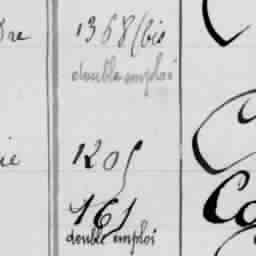 1368 (bis
double emploi
1205
161
double emploi